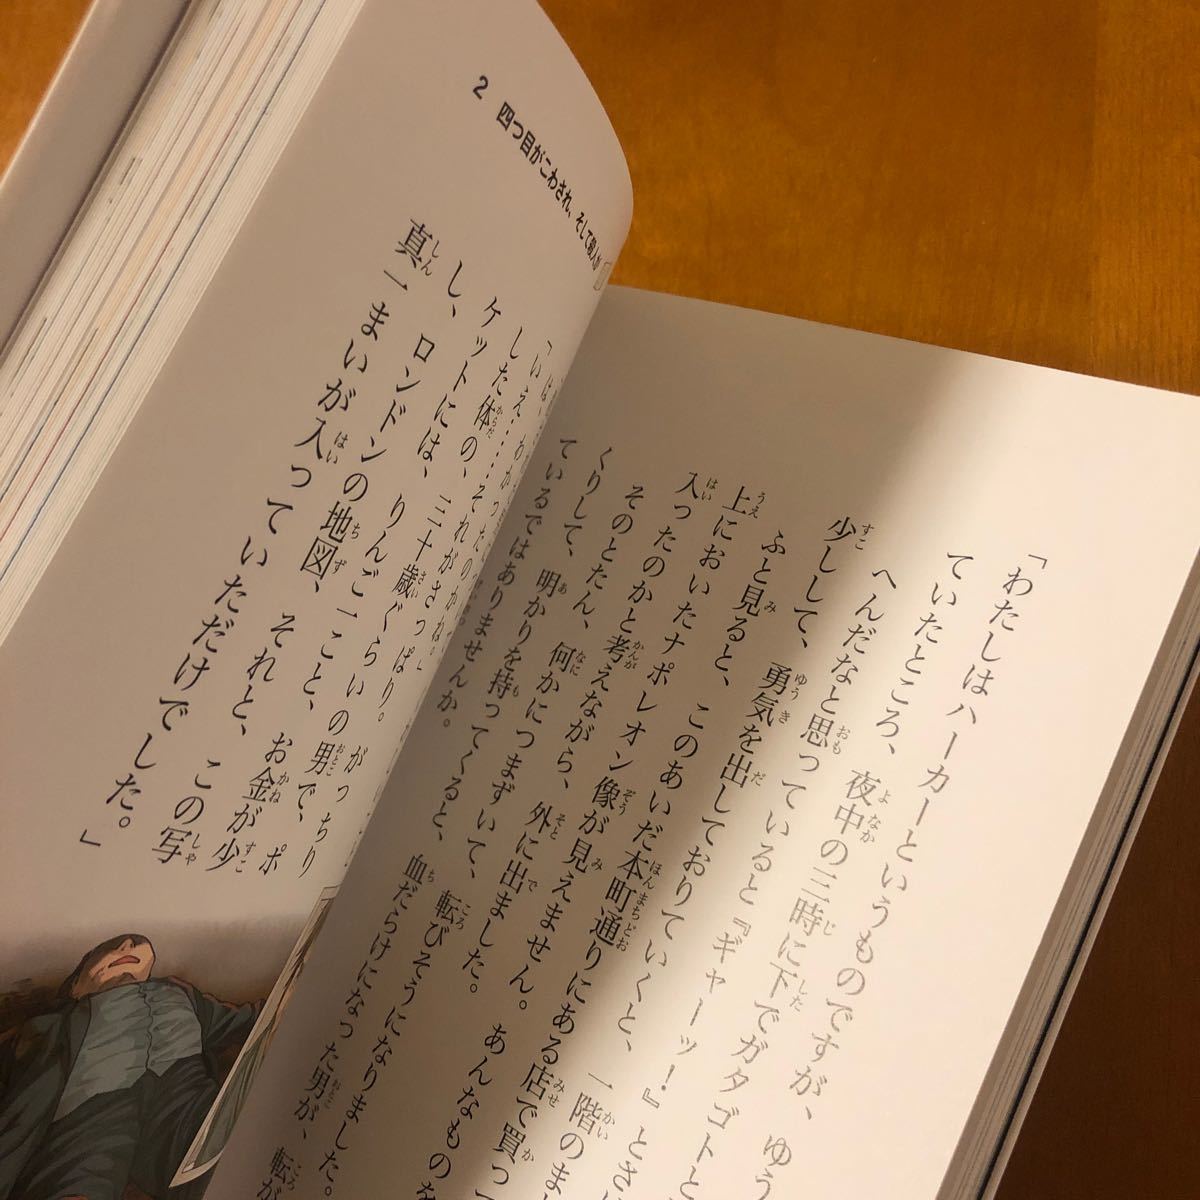 「わたしはハーカーというものですが、ゆう
ていたところ、夜中の三時に下でガタゴトと
へんだなと思っていると『ギャーッ!』とさ
少しして、勇気を出しておりていくと、一階のま
ふと見ると、このあいだ本町通りにある店で買っ
上においたナポレオン像が見えません。あんなものを
入ったのかと考えながら、外に出ました。
そのとたん、何かにつまずいて、転びそうになりました。
くりして、明かりを持ってくると、血だらけになった男が、転が
ているではありませんか。
2 四つ目がこわされ、そして殺人が
「いえ……それがさっぱり。がっちり
した体の、三十歳ぐらいの男で、ポ
ケットには、りんご一こと、お金が少
し、ロンドンの地図、それと、この写
真一まいが入っていただけでした。」